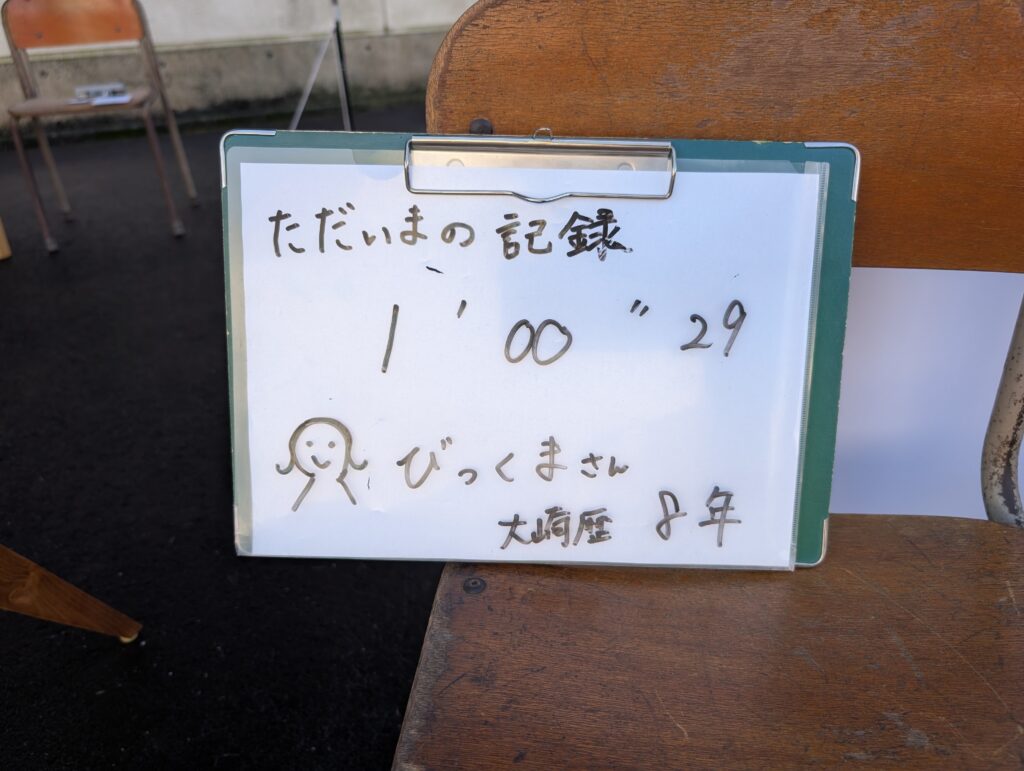 ただいまの記録
1' 00" 29
びっくまさん
大崎歴 8年